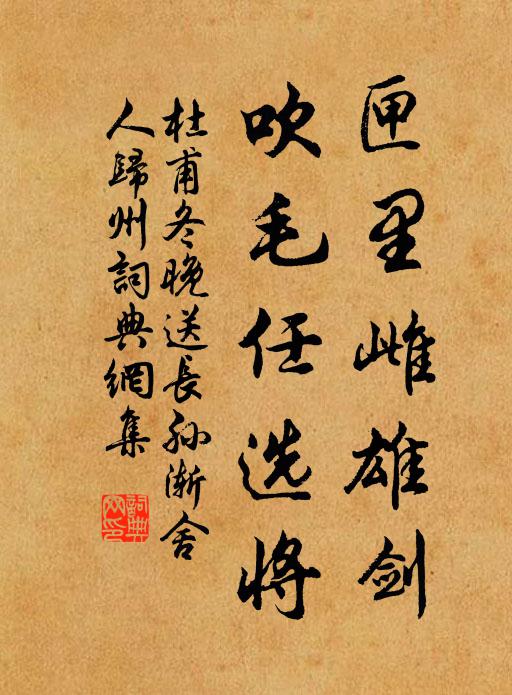 匣里雌雄剑
吹毛任选将
杜甫冬晚送长孙渐舍
人归州词典网集
词典网印